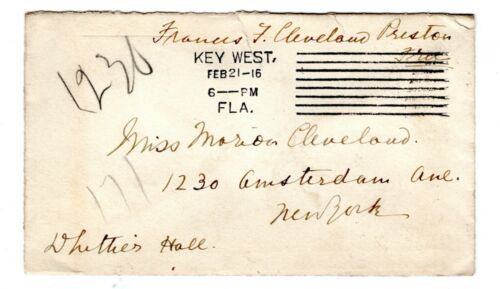 Francis F. Cleveland Preston
Free
KEY WEST,
FEB 21-16
6--PM
FLA.
1230
Miss Marion Cleveland.
1230 Amsterdam Ave.
New York
171
Whittier Hall.